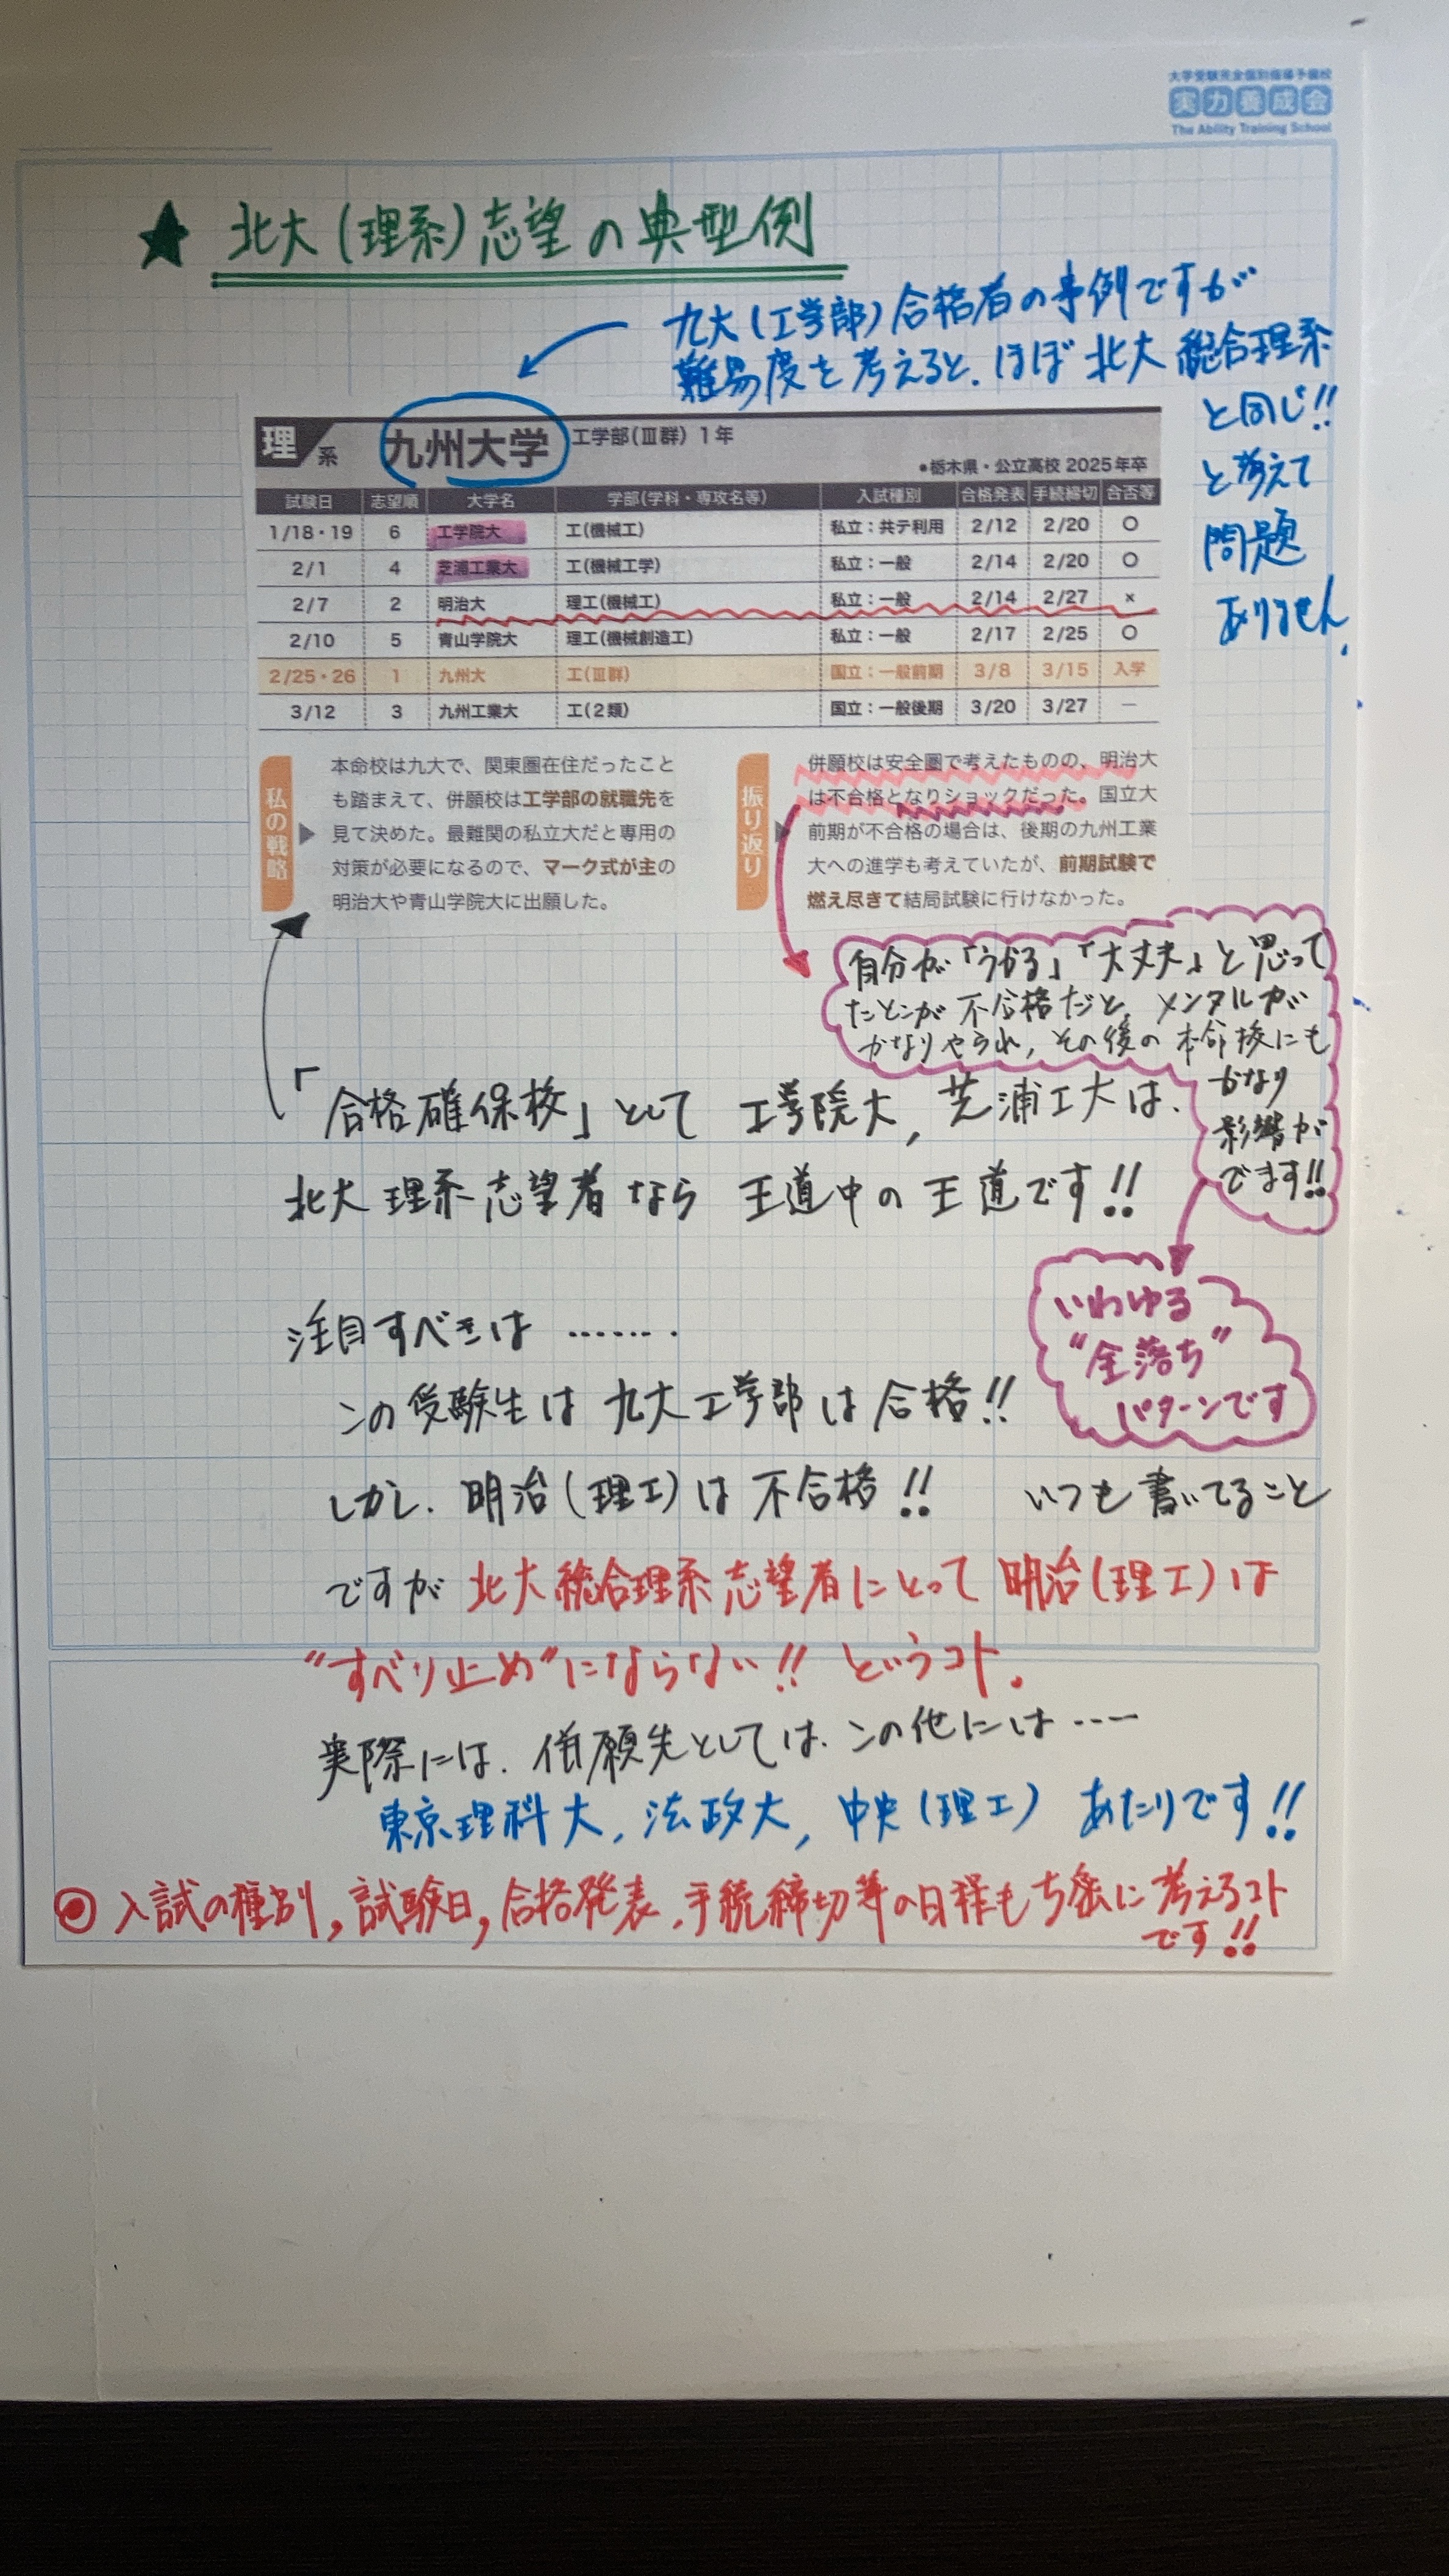 大学受験完全個別指導予備校
実力養成会
The Ability Training School
★ 北大(理系)志望の典型例
九大(工学部)合格者の事例ですが
難易度を考えると、ほぼ北大 総合理系
と同じ!!
と考えて
問題
ありません.
理系 九州大学 工学部(Ⅲ群) 1年
●栃木県・公立高校 2025年卒
試験日 志望順 大学名 学部(学科・専攻名等) 入試種別 合格発表 手続締切 合否等
1/18・19 6 工学院大 工(機械工) 私立:共テ利用 2/12 2/20 ○
2/1 4 芝浦工業大 工(機械工学) 私立:一般 2/14 2/20 ○
2/7 2 明治大 理工(機械工) 私立:一般 2/14 2/27 ×
2/10 5 青山学院大 理工(機械創造工) 私立:一般 2/17 2/25 ○
2/25・26 1 九州大 工(Ⅲ群) 国立:一般前期 3/8 3/15 入学
3/12 3 九州工業大 工(2類) 国立:一般後期 3/20 3/27 ―
私の戦略
本命校は九大で、関東圏在住だったこと
も踏まえて、併願校は工学部の就職先を
見て決めた。最難関の私立大だと専用の
対策が必要になるので、マーク式が主の
明治大や青山学院大に出願した。
振り返り
併願校は安全圏で考えたものの、明治大
は不合格となりショックだった。国立大
前期が不合格の場合は、後期の九州工業
大への進学も考えていたが、前期試験で
燃え尽きて結局試験に行けなかった。
自分が「うかる」「大丈夫」と思って
たとこが不合格だと、メンタルが
かなりやられ,その後の本命校にも
かなり
影響が
でます!!
「合格確保校」として 工学院大, 芝浦工大は、
北大理系志望者なら 王道中の王道です!!
いわゆる
"全落ち"
パターンです
注目すべきは …….
この受験生は九大工学部は合格!!
しかし、明治(理工)は不合格!! いつも書いてること
ですが 北大総合理系志望者にとって 明治(理工)は
"すべり止め"にならない!! というコト.
実際には、併願先としては、この他には…
東京理科大, 法政大, 中央(理工) あたりです!!
◎ 入試の種別, 試験日, 合格発表, 手続締切等の日程も考えるコト
です!!